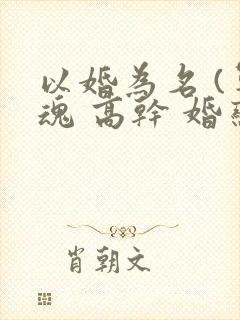 以婚為名(
魂 高幹 婚
肖朝文